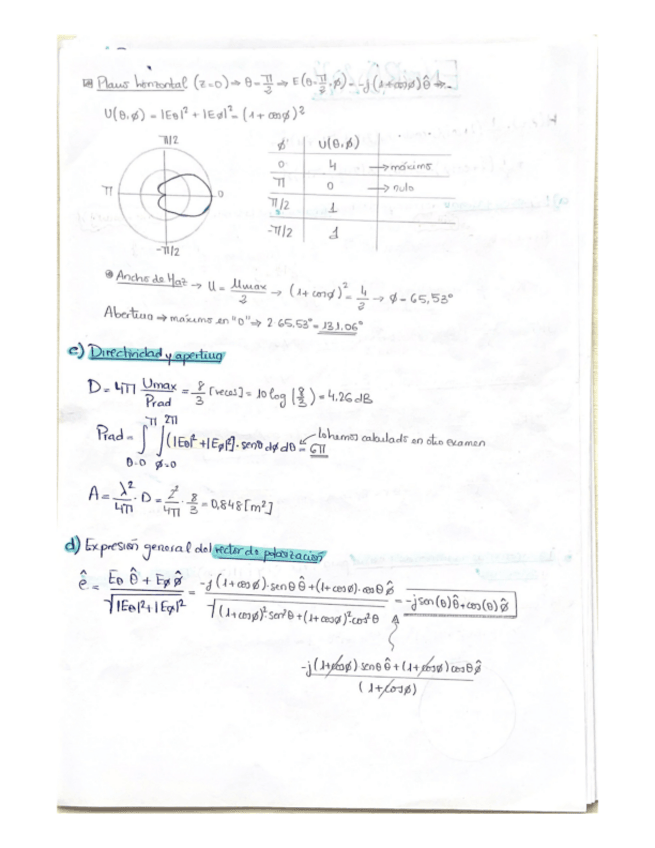 Plano horizontal (z=0) → θ=π/2 → E(θ=π/2, φ) = -j(1+cosφ)θ̂ →
U(θ,φ) = |Eθ|² + |Eφ|² = (1+cosφ)²
π/2
π
0
-π/2
φ U(θ,φ)
0 4 → máximo
π 0 → nulo
π/2 1
-π/2 1
Ancho de Haz → U = Umax/2 → (1+cosφ)² = 4/2 → φ = 65,53°
Abertura → máximo en "0" → 2·65,53° = 131.06°
c) Directividad y apertura
D = 4π Umax/Prad = 8/3 [veces] = 10 log (8/3) = 4.26 dB
Prad = ∫_{θ=0}^{π} ∫_{φ=0}^{2π} (|Eθ|² + |Eφ|²)·senθ dφ dθ = 6π ← Lo hemos calculado en otro examen
A = λ²/4π · D = 2²/4π · 8/3 = 0,848 [m²]
d) Expresión general del vector de polarización
ê = (Eθ θ̂ + Eφ φ̂)/√(|Eθ|² + |Eφ|²) = (-j(1+cosφ)·senθ θ̂ + (1+cosφ)·cosθ φ̂)/√((1+cosφ)²·sen²θ + (1+cosφ)²·cos²θ) = -jsen(θ)θ̂ + cos(θ)φ̂
(-j(1+cosφ) senθ θ̂ + (1+cosφ) cosθ φ̂)/(1+cosφ)